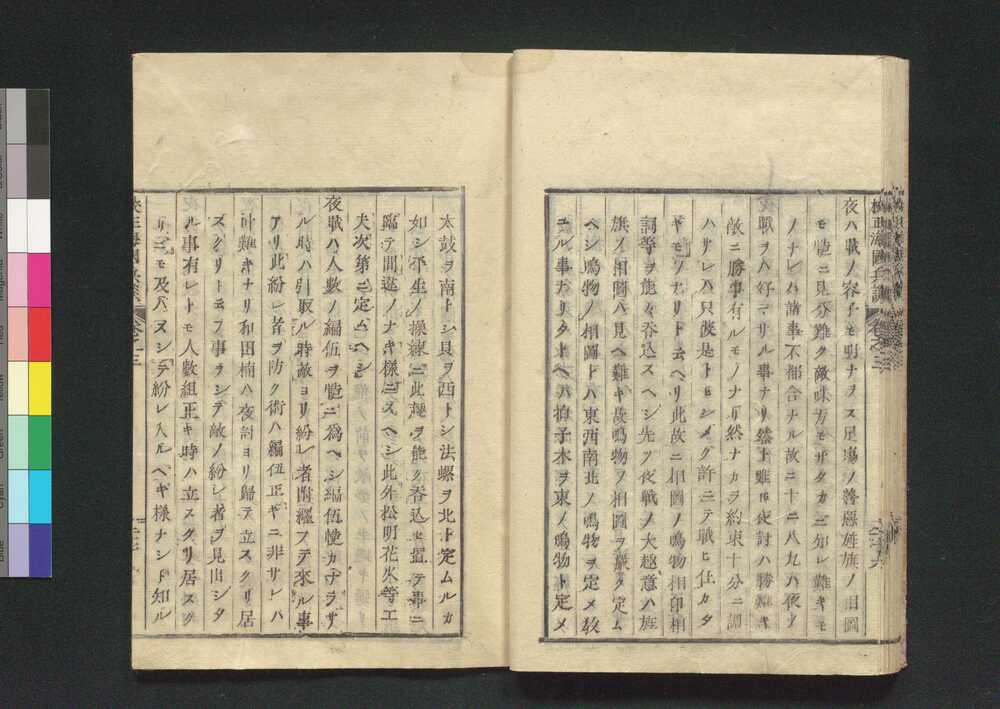 夜ハ戰ノ容子モ明ナラス足場ノ善惡旌旗ノ相圖
モ慥ニ見分難ク敵味方モサダカニ知レ難キモ
ノナレハ諸事不都合ナル故ニ十ニ八九ハ夜ノ
戰ヲハ好マサル事ナリ然トモ雖夜討ハ勝難キ
敵ニ勝事有ルモノナリ然ナカラ約束十分ニ調
ハサレハ只後是トモシメク許ニテ戰ヒ仕カタ
キモノナリト云ヘリ此故ニ相圖ノ鳴物相印相
詞等ヲ能々呑込スヘシ先ツ夜戰ノ大趣意ハ旌
旗ノ相圖ハ見ヘ難キ故鳴物ノ相圖ヲ嚴ク定ム
ヘシ鳴物ノ相圖トハ東西南北ノ鳴物ヲ定メ教
ユル事ナリタトヘハ拍子木ヲ東ノ鳴物ト定メ
太鼓ヲ南トシ貝ヲ西トシ法螺ヲ北ト定ムルカ
如シ平生ノ操練ニ此趣ヲ能ク呑込セ置テ事ニ
臨テ間違ノナキ樣ニスヘシ此外松明花火等工
夫次第ニ定ムヘシ
夜戰ハ人數ノ編伍ヲ慥ニ爲ヘシ編伍慥カナラサ
ル時ハ引取ル時敵ヨリ紛レ者附纏フテ來ル事
アリ此紛レ者ヲ防ク術ハ編伍正キニ非サレハ
叶難キナリ和田楠ハ夜討ヨリ歸テ立スクリ居
スクリト云フ事ヲシテ敵ノ紛レ者ヲ見出シタ
ル事有レトモ人數組正キ時ハ立スグリ居スグ
リニモ及ハスシテ紛レ入ルヘキ樣ナシト知ル